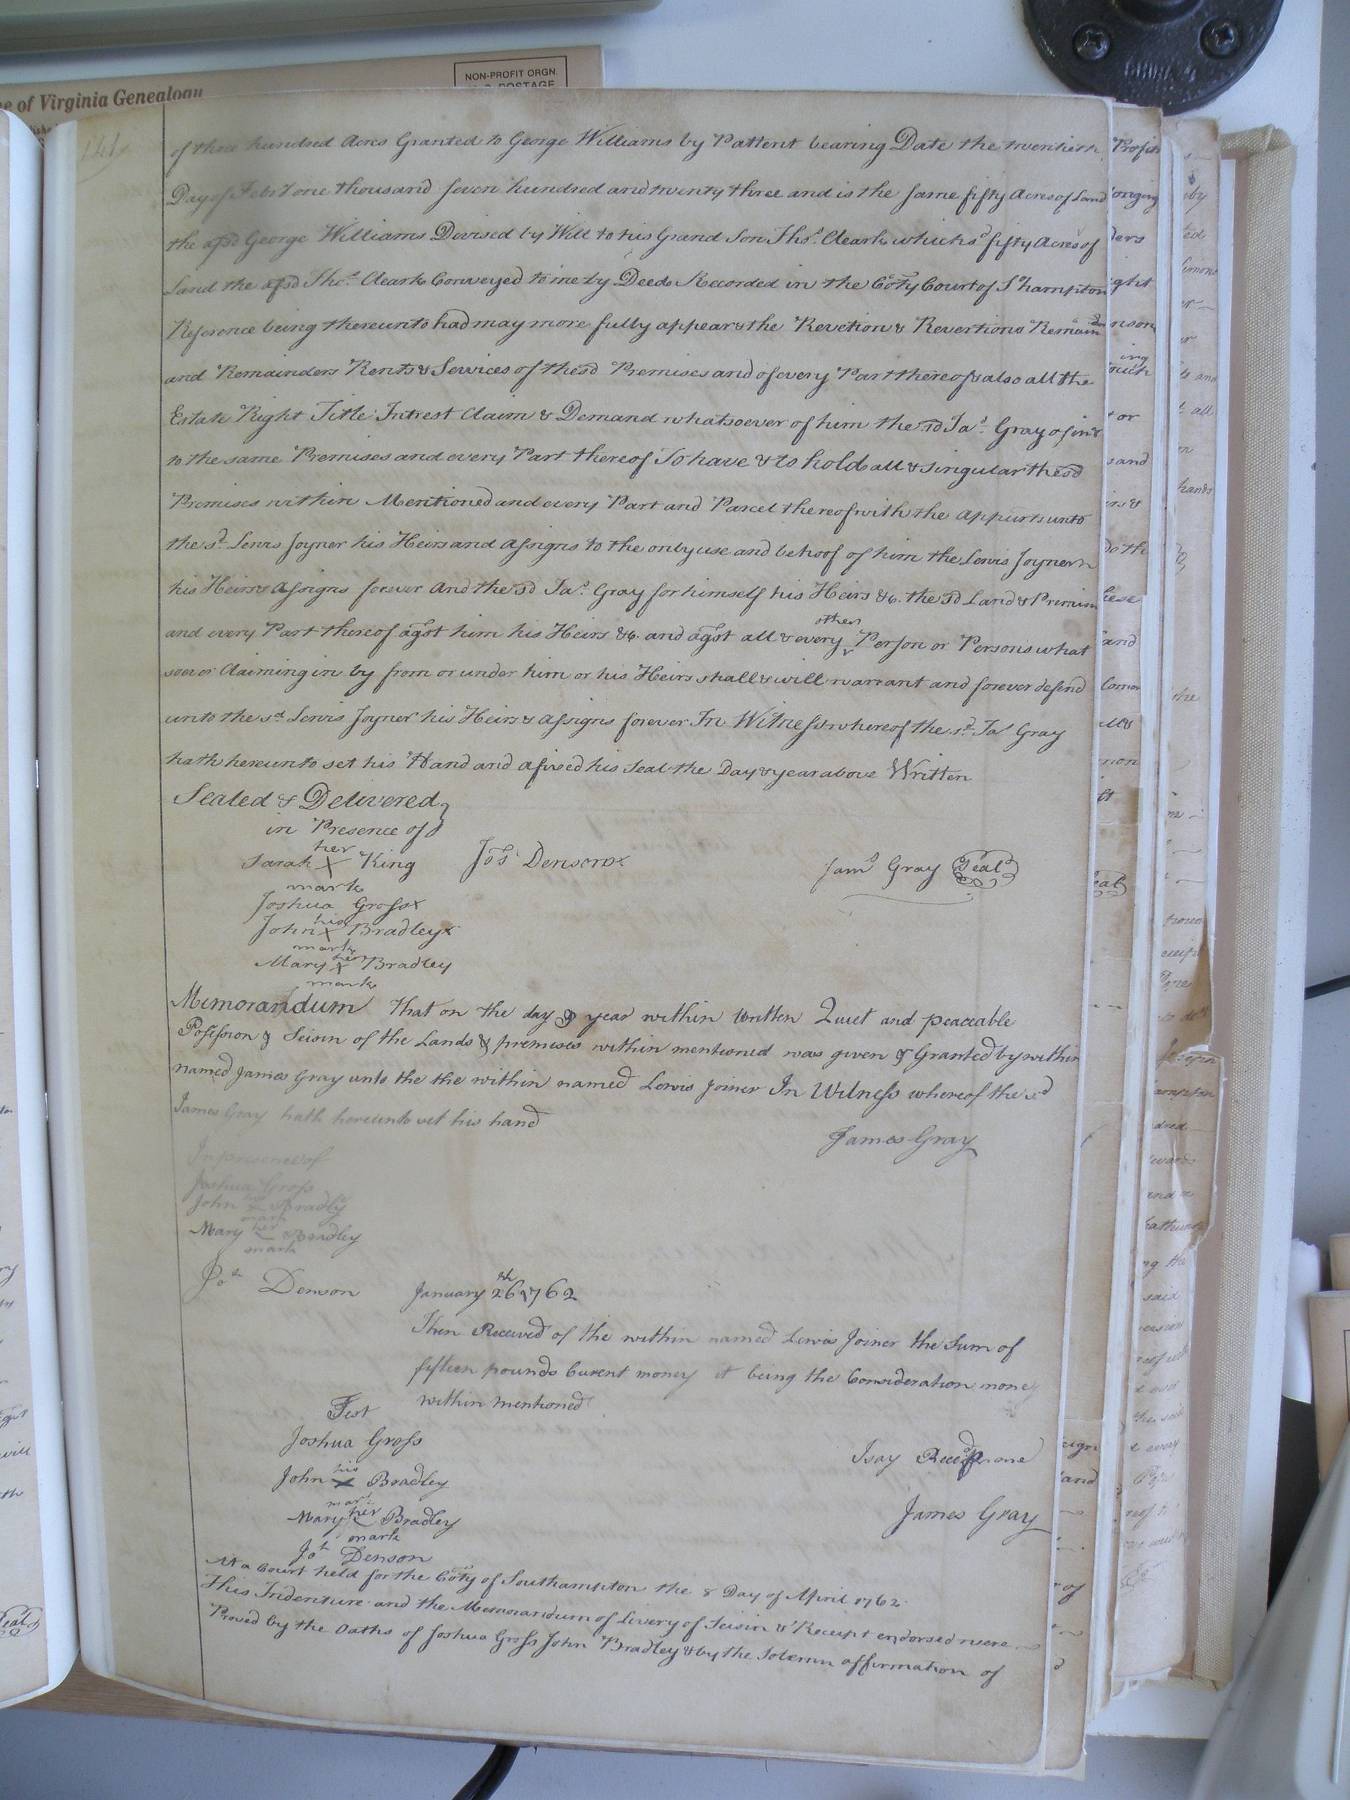 e of Virginia Genealogy
NON-PROFIT ORGN.
POSTAGE
141
of three hundred Acres Granted to George Williams by Pattent bearing Date the twentieth
Day of Febry one thousand seven hundred and twenty three and is the same fifty Acres of Land
the afsd George Williams Devised by Will to his Grand Son Thos. Clearke which sd fifty Acres of
Land the afsd Thos. Clearke Conveyed to me by Deede Recorded in the Coty Court of S°hampton
Reference being thereunto had may more fully appear & the Revetion & Revertions Remain
and Remainders Rents & Services of the sd Premises and of every Part thereof & also all the
Estate Right Title Intrest Claim & Demand whatsoever of him the sd Jas. Gray of in &
to the same Premises and every Part thereof To have & to hold all & singular the sd
Premises within Mentioned and every Part and Parcel thereof with the Appurts unto
the sd. Lewis Joyner his Heirs and Assigns to the only use and behoof of him the Lewis Joyner
his Heirs & Assigns forever And the sd Jas. Gray for himself his Heirs &c. the sd Land & Premim
and every Part thereof agst him his Heirs &c. and agst all & every other Person or Persons what
soever Claiming in by from or under him or his Heirs shall & will warrant and forever defend
unto the sd. Lewis Joyner his Heirs & Assigns forever In Witness whereof the sd. Jas Gray
hath hereunto set his Hand and afixed his Seal the Day & year above Written
Sealed & Delivered
in Presence of
her
Sarah X King Jos. Denson x Jams Gray Seal
mark
Joshua Gross x
his
John X Bradley x
mark
her
Mary X Bradley
mark
Memorandum That on the day & year within Written Quiet and peaceable
Possession & Seisin of the Lands & premises within mentioned was given & Granted by within
named James Gray unto the the within named Lewis Joiner In Witness whereof the sd
James Gray hath hereunto set his hand
James Gray
In presence of
Joshua Gross
John Bradley
mark
her
Mary Bradley
mark
Jos Denson January 26th 1762
Then Received of the within named Lewis Joiner the Sum of
fifteen pounds Curent money it being the Consideration mone
within mentioned
Test
Joshua Gross
I say Recd p me
his
John X Bradley
mark
James Gray
her
Mary Bradley
mark
Jos Denson
At a Court held for the Coty of Southampton the 8 Day of April 1762
This Indenture and the Memorandum of Livery of Seisin & Receipt endorsed were
Proved by the Oaths of Joshua Gross John Bradley & by the Solemn affirmation of